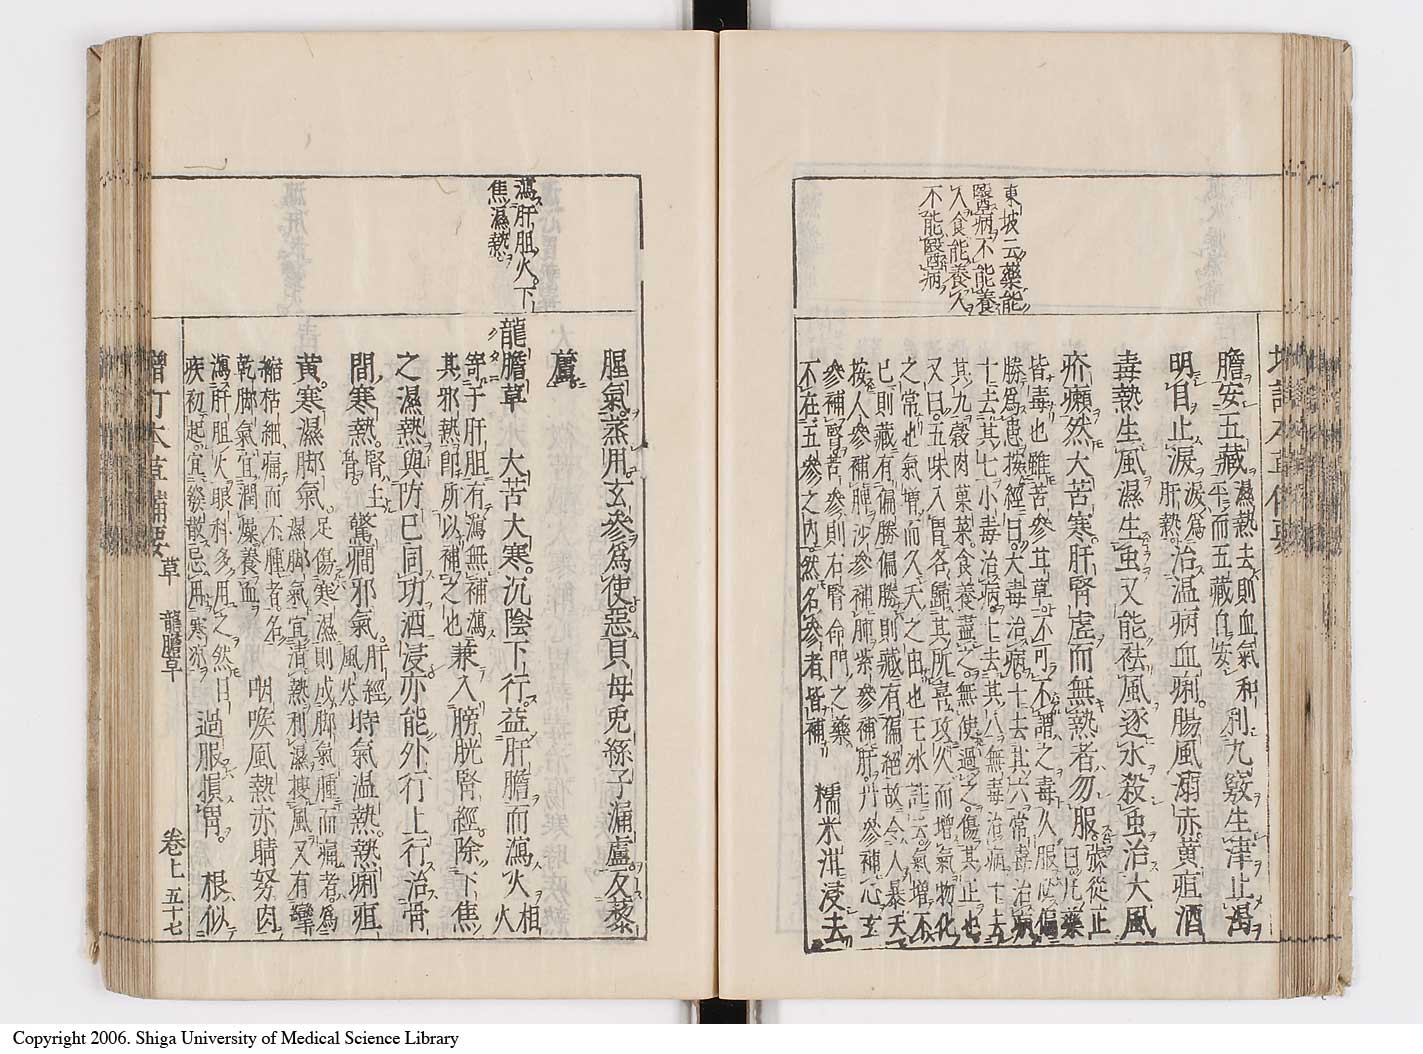 東坡云藥能
醫病不能養
人食能養人
不能醫病
膽安五藏濕熱去則血氣和
平而五藏自安利九竅生津止渴
明目止淚淚爲
肝熱治温病血痢腸風溺赤黄疸酒
毒熱生風濕生虫又能祛風逐水殺虫治大風
疥癩然大苦寒肝腎虛而無熱者勿服張從正
曰凡藥
皆毒也雖苦參甘草不可不謂之毒久服必偏
勝爲患按經曰大毒治病十去其六常毒治病
十去其七小毒治病十去其八無毒治病十去
其九穀肉菓菜食養盡之無使過之傷其正也
又曰五味入胃各歸其所喜攻久而增氣物化
之常也氣增而久夭之由也王冰註云氣增不
已則藏有偏勝偏勝則藏有偏絕故令人暴夭
按人參補脾沙參補肺紫參補肝丹參補心玄
參補腎苦參則右腎命門之藥
不在五參之内然名參者皆補 糯米泔浸去
瀉肝胆火下
焦濕熱
腥氣蒸用玄參爲使惡貝母兎絲子漏盧反藜
蘆
龍膽草 大苦大寒沉陰下行益肝膽而瀉火相火
寄于肝胆有瀉無補瀉
其邪熱即所以補之也兼入膀胱腎經除下焦
之濕熱與防已同功酒浸亦能外行上行治骨
間寒熱腎主
骨驚癇邪氣肝經
風火時氣温熱熱痢疸
黄寒濕脚氣足傷寒濕則成脚氣腫而痛者爲
濕脚氣宜清熱利濕搜風又有攣
縮枯細痛而不腫者名
乾脚氣宜潤燥養血 咽喉風熱赤睛努肉
瀉肝胆火眼科多用之然目
疾初起宜發散忌用寒涼 過服損胃 根似
增訂本草備要 草 龍膽草 卷上 五十七